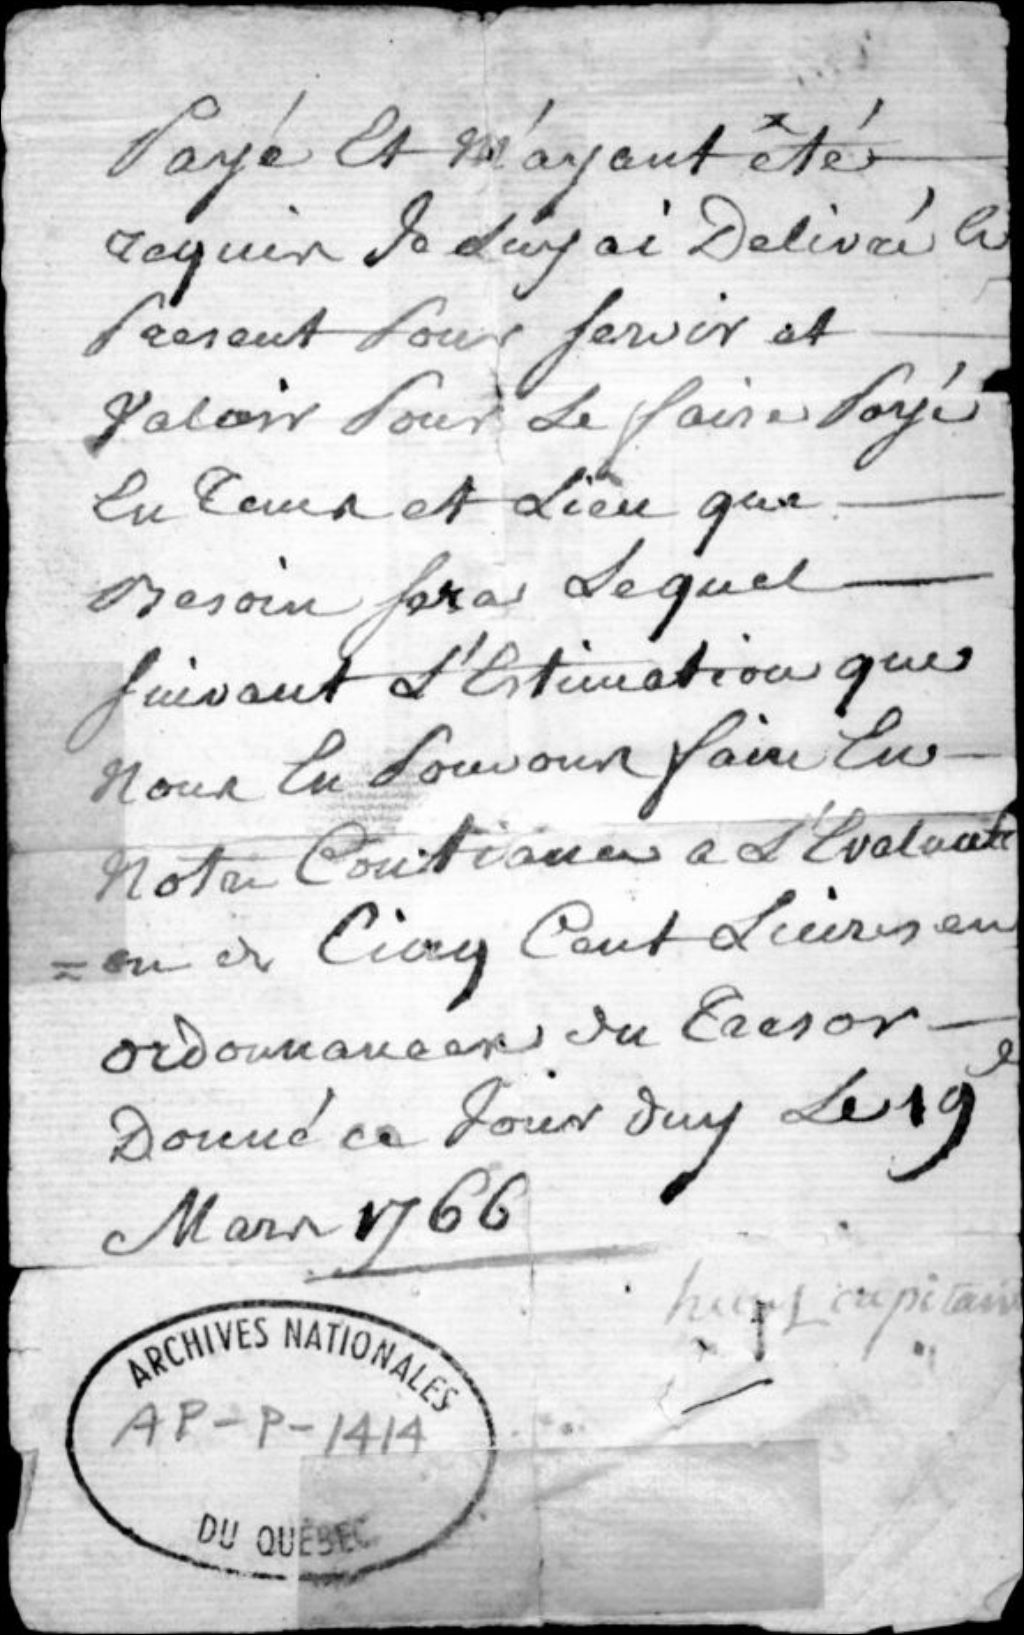 Payé Et M'ayant été
requis Je Luy ai Delivré le
Present Pour servir et
Valoir Pour Le faire Payé
En Tems et Lieu que
Besoin sera Lequel
suivant L'Estimation que
Nous En Pouvons faire En
Notre Contiance a L'Evaluati
=on de Cinq Cent Livres en
ordonnances du Tresor
Donné ce Jour duy Le 19e
Mars 1766
capitain
ARCHIVES NATIONALES
AP-P-1414
DU QUÉBEC